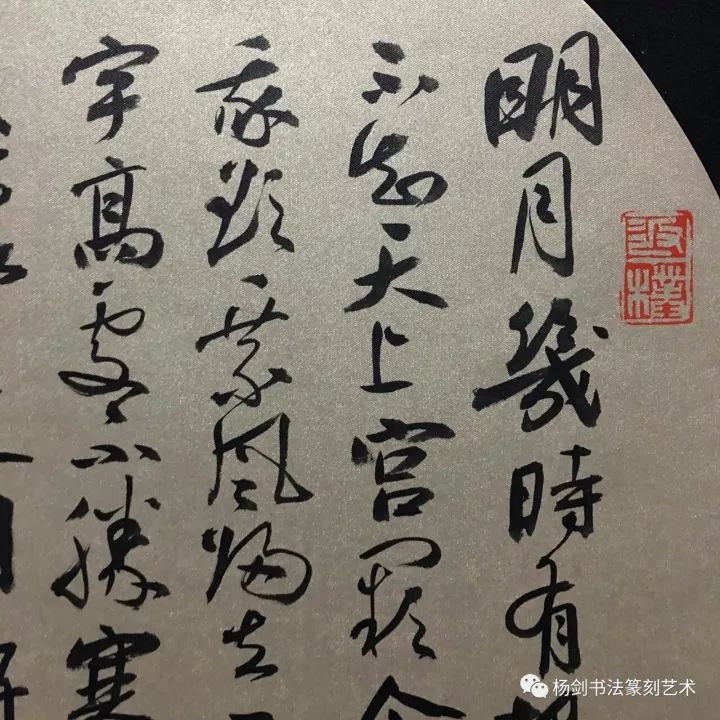 返樸
明月幾時有
不知天上宫闕今
我欲乘風歸去
宇高處不勝寒
杨剑书法篆刻艺术